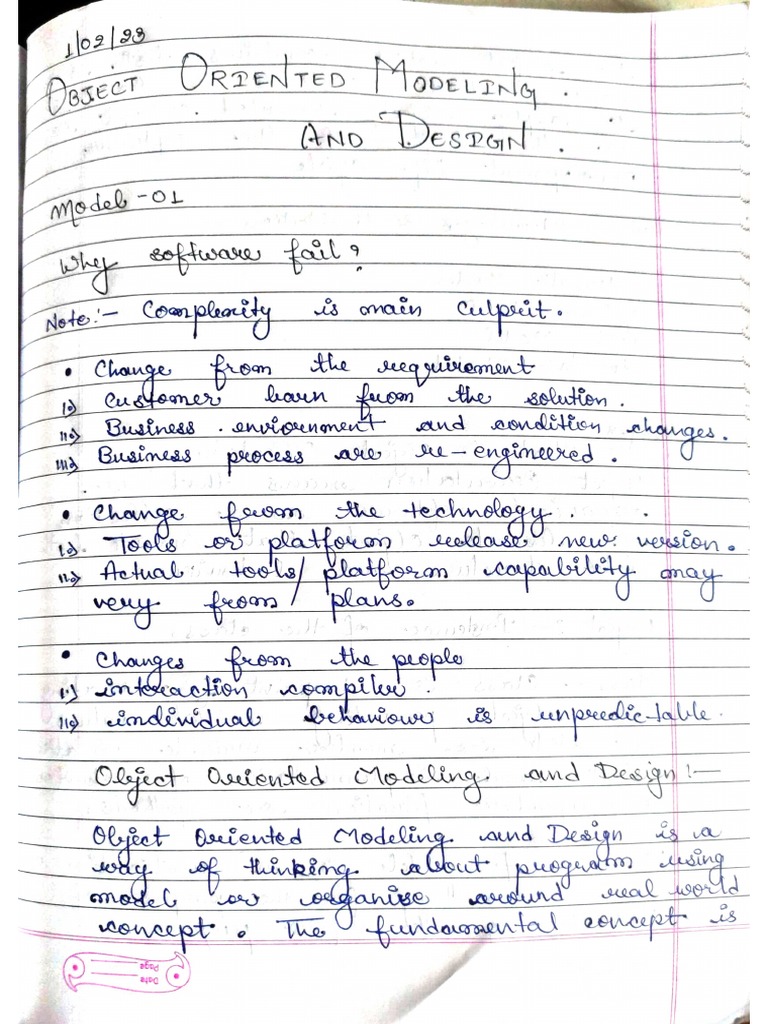 1/02/23
OBJECT ORIENTED MODELING
AND DESIGN.
Model -01
Why software fail?
Note:- Complexity is main culprit.
• Change from the requirement
i) Customer learn from the solution.
ii) Business enviornment and condition changes.
iii) Business process are re-engineered.
• Change from the technology.
i) Tools or platform release new version.
ii) Actual tools/platform capability may
very from/plans.
• Changes from the people
i) interaction compiler.
ii) individual behaviour is unpredictable.
Object Oriented Modeling and Design :-
Object Oriented Modeling and Design is a
way of thinking about program using
model or organise around real world
concept. The fundamental concept is
Date
Page